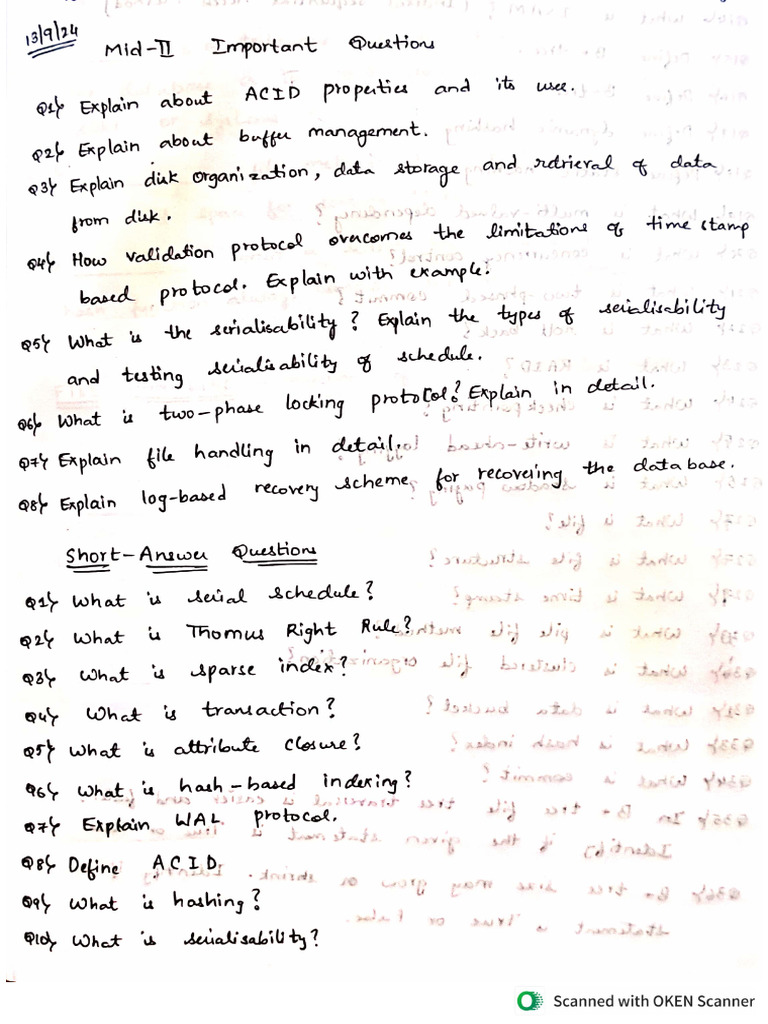 13/9/24
Mid-II Important Questions
Q1} Explain about ACID properties and its use.
Q2} Explain about buffer management.
Q3} Explain disk organization, data storage and retrieval of data
from disk.
Q4} How validation protocol overcomes the limitations of time stamp
based protocol. Explain with example.
Q5} What is the serialisability? Explain the types of serialisability
and testing serialisability of schedule.
Q6} What is two-phase locking protocol? Explain in detail.
Q7} Explain file handling in detail.
Q8} Explain log-based recovery scheme for recovering the database.
Short-Answer Questions
Q1} What is serial schedule?
Q2} What is Thomus Right Rule?
Q3} What is sparse index?
Q4} What is transaction?
Q5} What is attribute closure?
Q6} What is hash-based indexing?
Q7} Explain WAL protocol.
Q8} Define ACID
Q9} What is hashing?
Q10} What is serialisability?
Scanned with OKEN Scanner